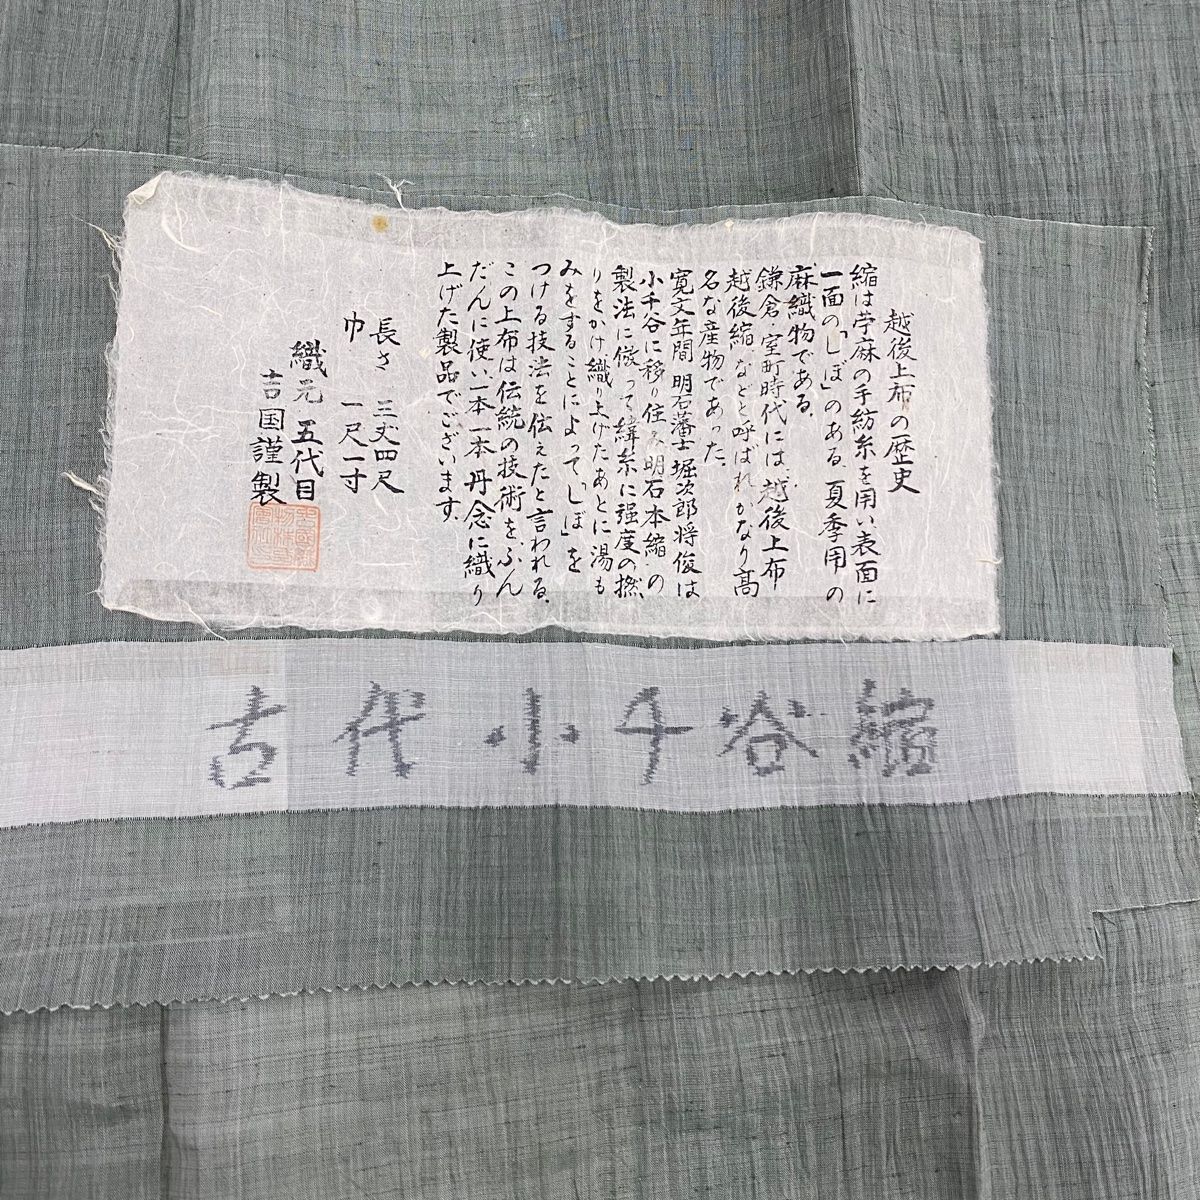 越後上布の歴史
縮は苧麻の手紡糸を用い表面に
一面の「しぼ」のある、夏季用の
麻織物である。
鎌倉・室町時代には、越後上布
越後縮、などと呼ばれ、かなり高
名な産物であった。
寛文年間 明石藩士 堀次郎将俊は
小千谷に移り住み明石本縮、の
製法に倣って緯糸に強度の撚
りをかけ織り上げたあとに湯も
みをすることによって「しぼ」を
つける技法を伝えたと言われる。
この上布は伝統の技術を、ふん
だんに使い一本一本丹念に織り
上げた製品でございます。
長さ 三丈四尺
巾 一尺一寸
織元 五代目
吉国謹製
古代小千谷縮